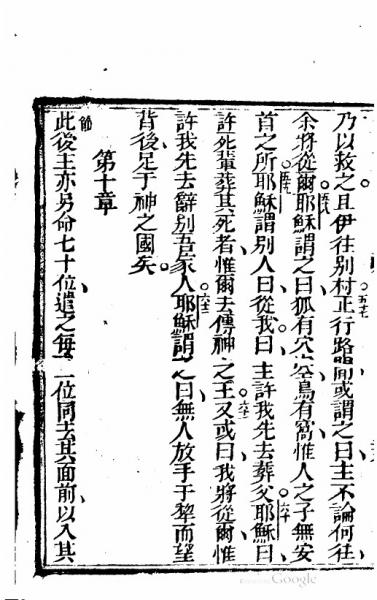 乃以救之且伊往别村正行路間或謂之曰主不論何往
余將從爾耶穌謂之曰狐有穴空鳥有窩惟人之子無安
首之所耶穌謂别人曰從我曰主許我先去葬父耶穌曰
許死輩葬其死者惟爾去傳神之王又或曰我將從爾惟
許我先去辭别吾家人耶穌謂之曰無人放手于犂而望
背後足于神之國矣
第十章
節
此後主亦另命七十位遣之每二位同去其面前以入其
五七
五八
五九
六十
六一
六二
Google